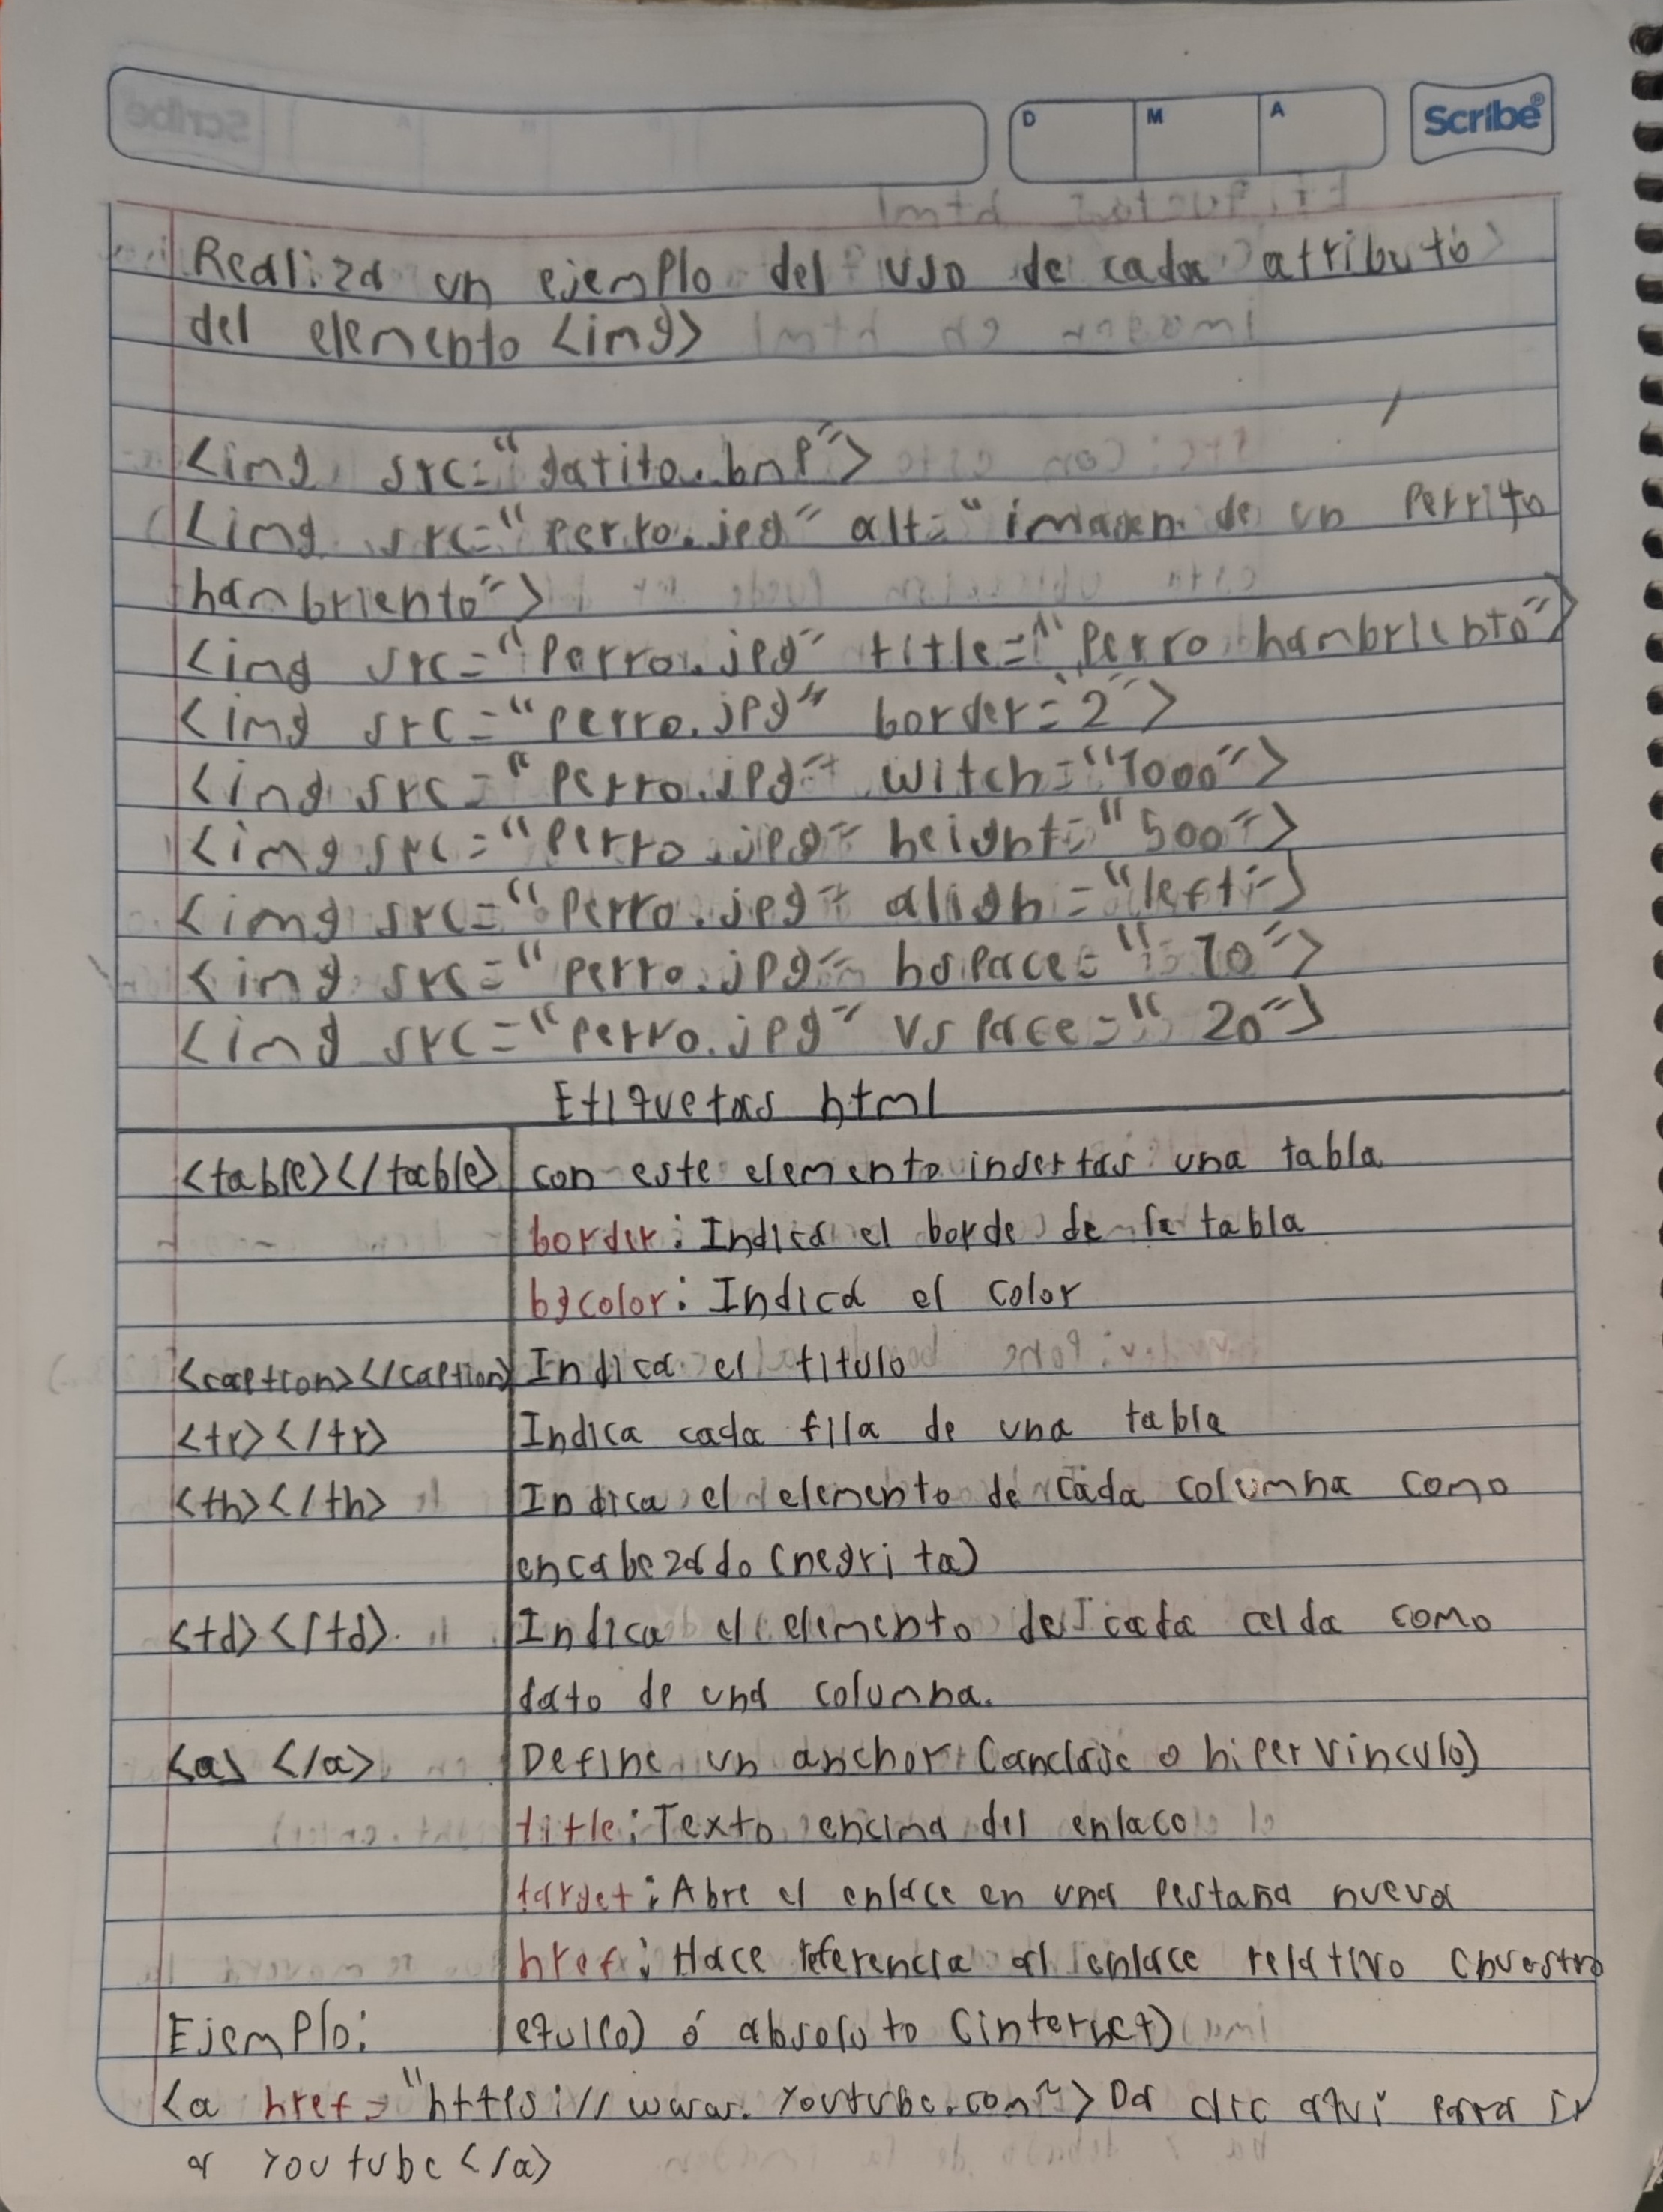 D M A Scribe
Realiza un ejemplo del uso de cada atributo
del elemento <img>
<img src="gatito.bmp">
<img src="perro.jpg" alt="imagen de un perrito
hambriento">
<img src="Perro.jpg" title="Perro hambriento">
<img src="perro.jpg" border="2">
<img src="perro.jpg" witch="1000">
<img src="perro.jpg" height="500">
<img src="perro.jpg" align="left">
<img src="perro.jpg" hspace="10">
<img src="perro.jpg" vspace="20">
Etiquetas html
<table></table> con este elemento insertas una tabla
border: Indica el borde de la tabla
bgcolor: Indica el color
<caption></caption> Indica el titulo
<tr></tr> Indica cada fila de una tabla
<th></th> Indica el elemento de cada columna como
encabezado (negrita)
<td></td> Indica el elemento de cada celda como
dato de una columna.
<a> </a> Define un anchor (anclaje o hipervinculo)
title: Texto encima del enlace
target: Abre el enlace en una pestaña nueva
href: Hace referencia al enlace relativo (nuestro
Ejemplo: equipo) ó absoluto (internet)
<a href="https://www.youtube.com"> Da clic aquí para ir
a Youtube </a>